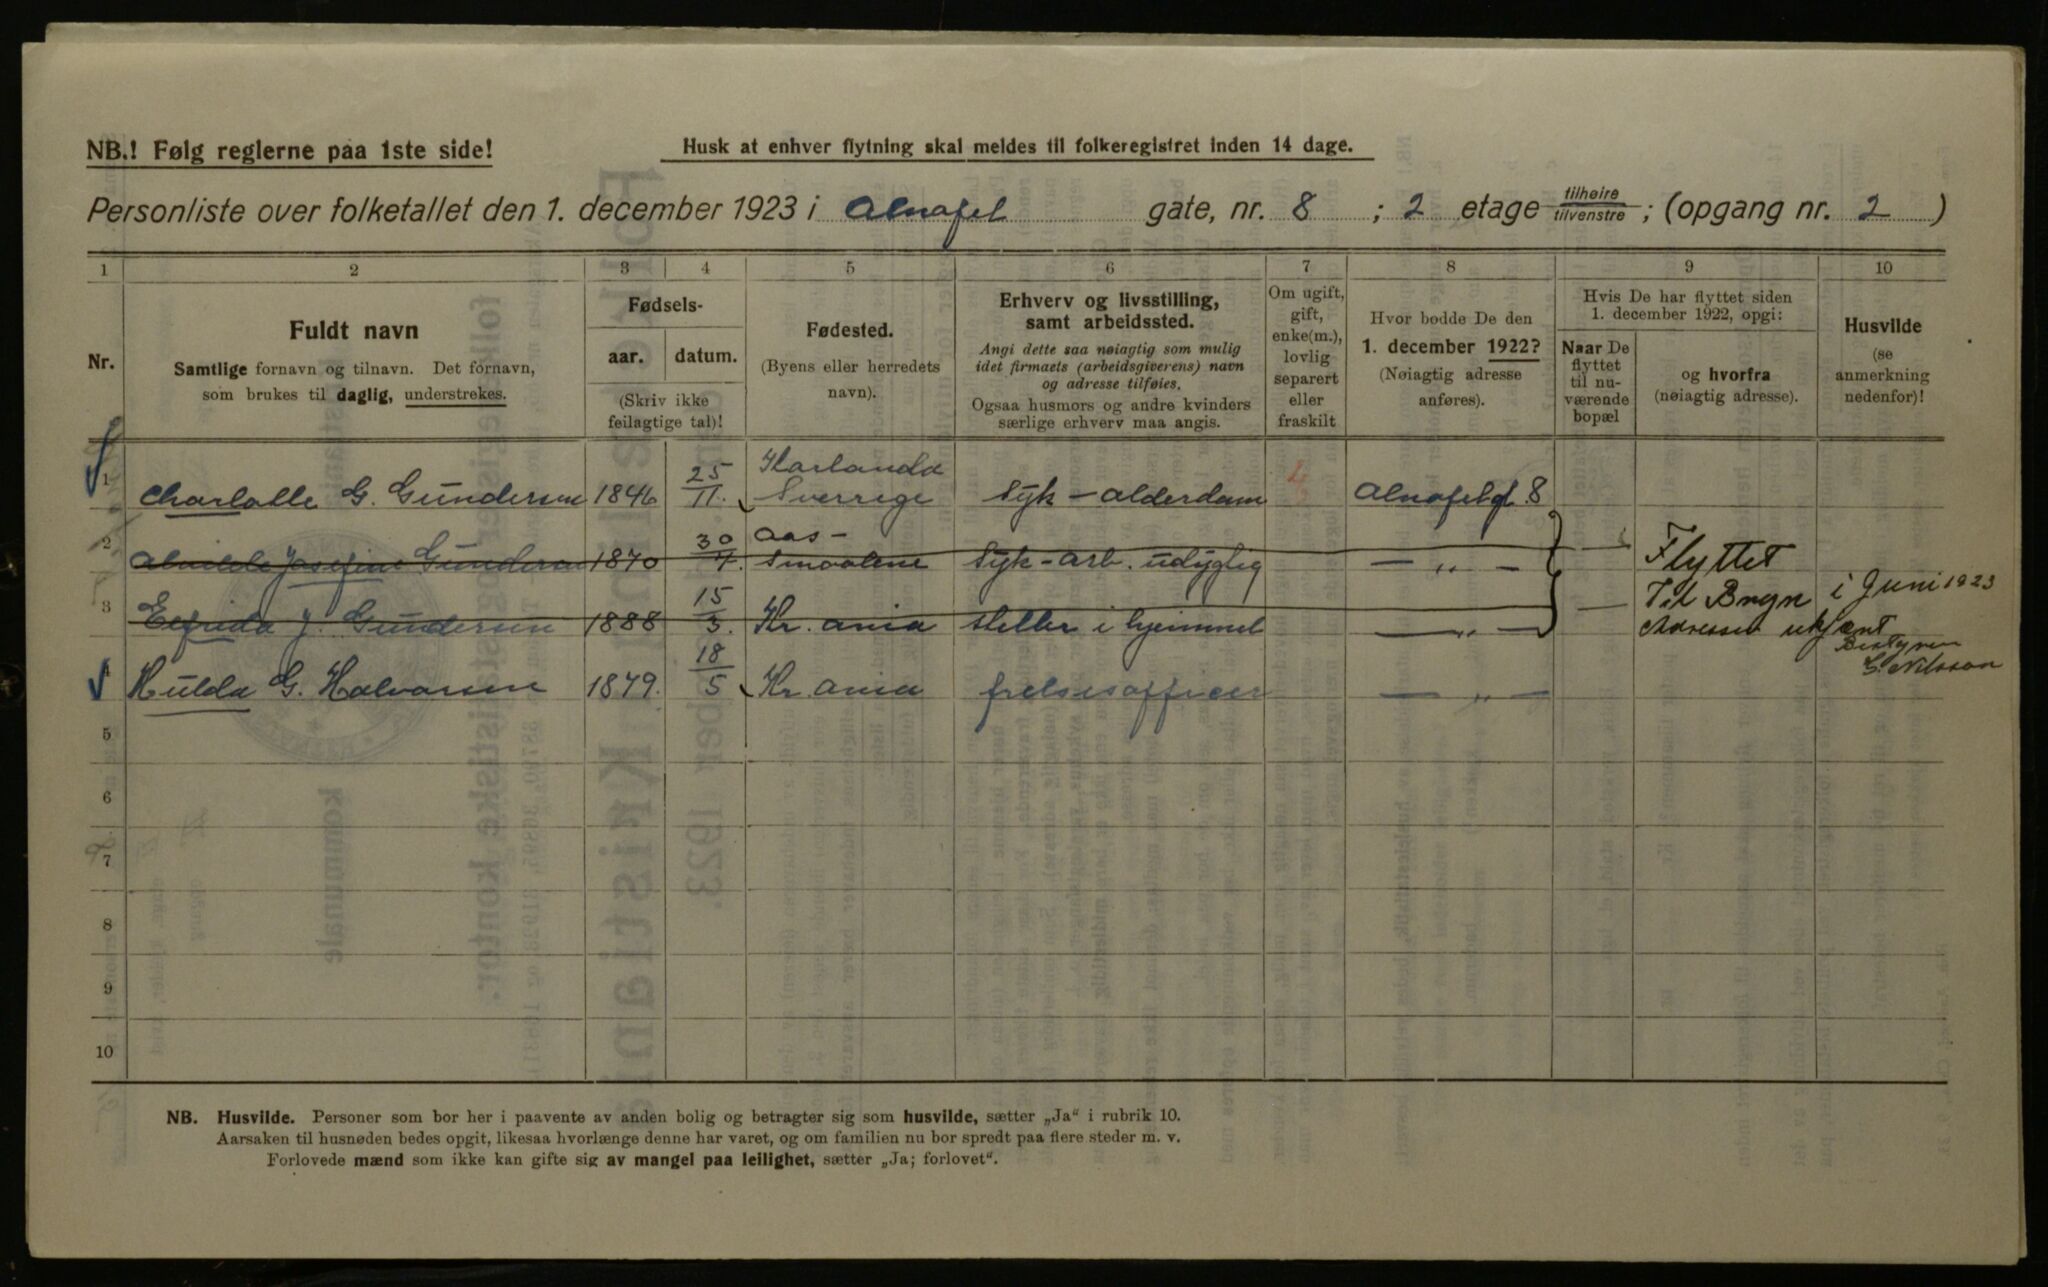 NB.! Følg reglerne paa 1ste side!
Husk at enhver flytning skal meldes til folkeregistret inden 14 dage.
Personliste over folketallet den 1. december 1923 i Alnafel gate, nr. 8 ; 2 etage tilhøire tilvenstre ; (opgang nr. 2 )
1 2 3 4 5 6 7 8 9 10
Nr.
Fuldt navn
Samtlige fornavn og tilnavn. Det fornavn,
som brukes til daglig, understrekes.
Fødsels-
aar. datum.
(Skriv ikke
feilagtige tal)!
Fødested.
(Byens eller herredets
navn).
Erhverv og livsstilling,
samt arbeidssted.
Angi dette saa nøiagtig som mulig
idet firmaets (arbeidsgiverens) navn
og adresse tilføies.
Ogsaa husmors og andre kvinders
særlige erhverv maa angis.
Om ugift,
gift,
enke(m.),
lovlig
separert
eller
fraskilt
Hvor bodde De den
1. december 1922?
(Nøiagtig adresse
anføres).
Hvis De har flyttet siden
1. december 1922, opgi:
Naar De
flyttet
til nu-
værende
bopæl
og hvorfra
(nøiagtig adresse).
Husvilde
(se
anmerkning
nedenfor)!
1 Charlotte G. Gundersen 1846 25/11. Karlanda Sverrege Syk - alderdom Alnafelgt 8
2 Josefine Gundersen 1870 30/7. Aas - Smaalene Syk - arb. udygtig — „ — Flyttet
3 Elfrida J. Gundersen 1888 15/3. Kr. ania steller i hjemmet — „ — Til Bryn i Juni 1923
Adresse ukjent
Bestyrer
G. Nilsson
4 Hulda G. Halvorsen 1879. 18/5 Kr. ania frelsesofficer — „ —
5
6
7
8
9
10
NB. Husvilde. Personer som bor her i paavente av anden bolig og betragter sig som husvilde, sætter „Ja“ i rubrik 10.
Aarsaken til husnøden bedes opgit, likesaa hvorlænge denne har varet, og om familien nu bor spredt paa flere steder m. v.
Forlovede mænd som ikke kan gifte sig av mangel paa leilighet, sætter „Ja; forlovet“.